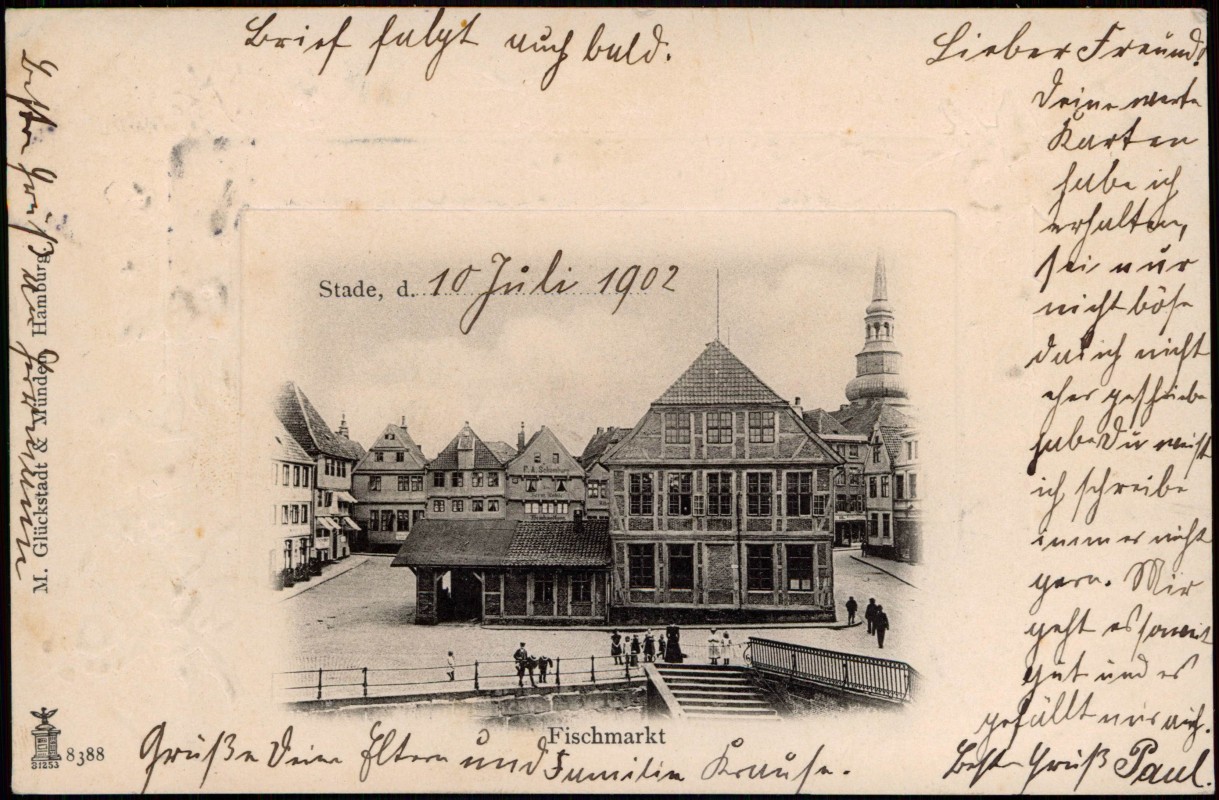 Brief folgt auch bald.
Lieber Freund!
Deine werte
Karten
habe ich
erhalten,
sei nur
nicht böse
das ich nicht
eher geschriebe
habe Du weist
ich schreibe
immer nicht
gern. Mir
geht es soweit
gut und es
gefällt mir auch.
Beste Grüß Paul.
Stade, d. 10 Juli 1902
P. A. Schomburg
Fischmarkt
Grüße Deine Eltern und Familie Krause.
M. Glückstadt & Münden, Hamburg.
8388
31253